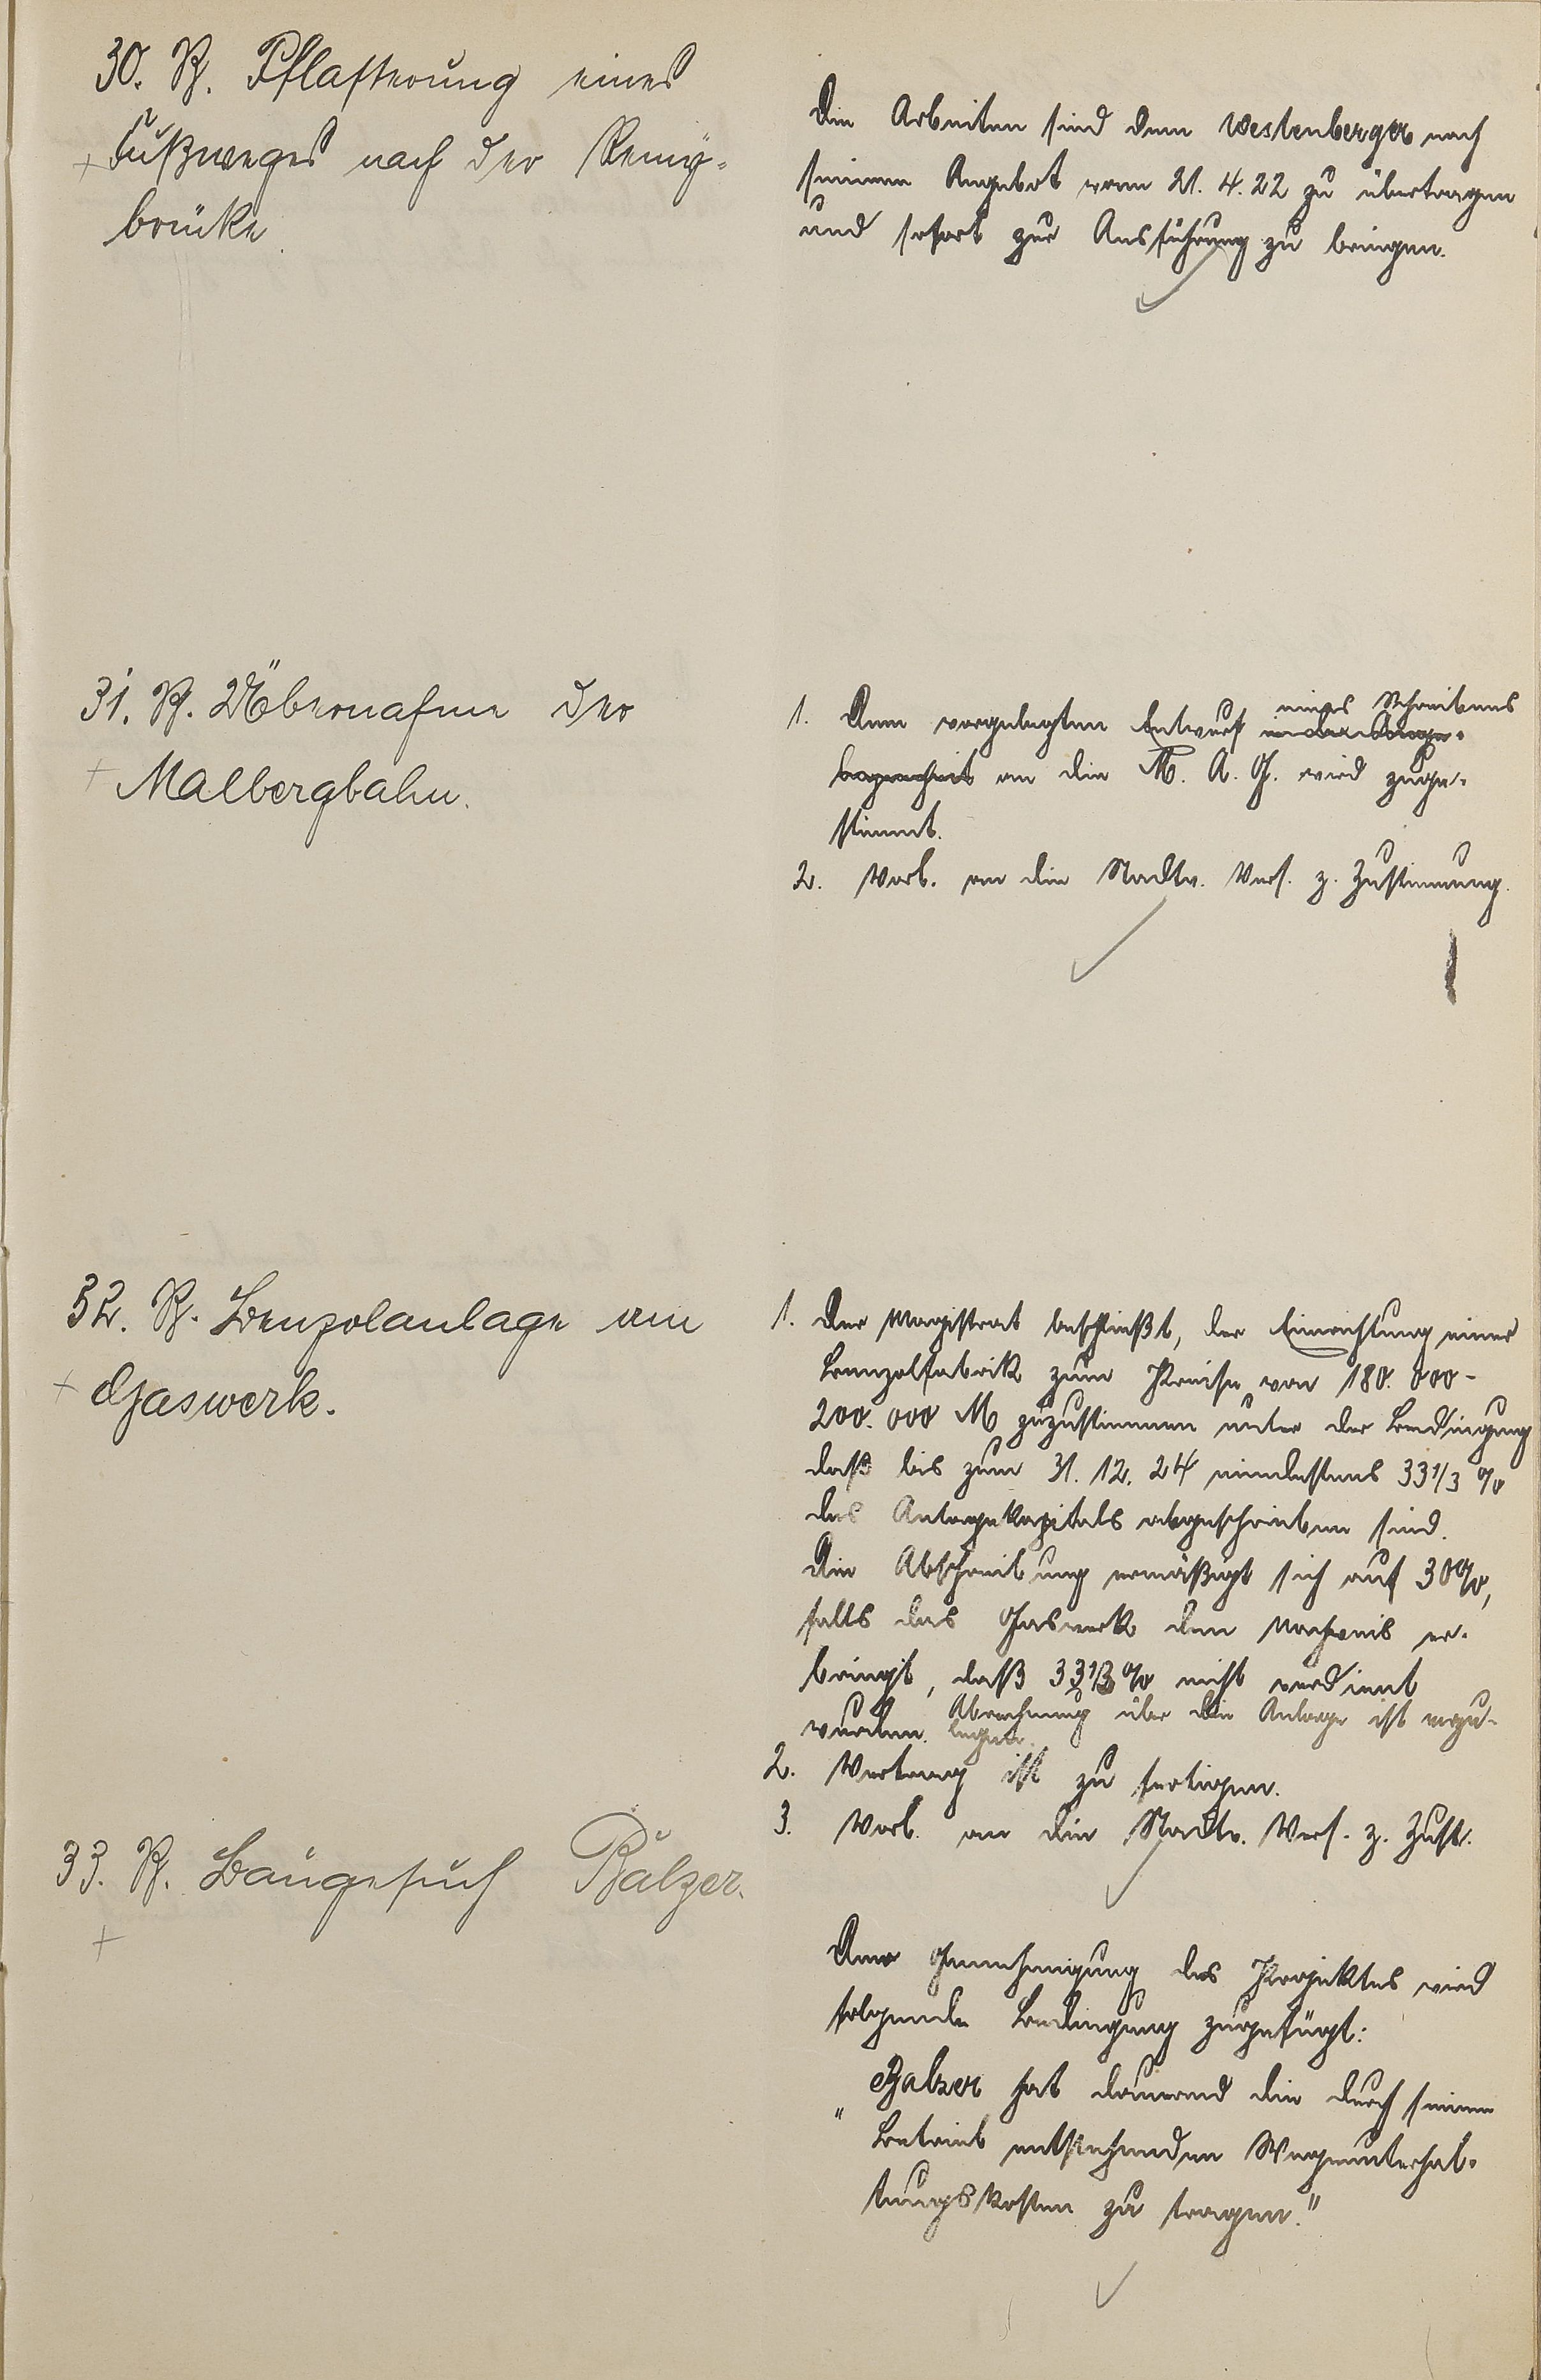 30. B. Pflasterung eines
+ Fußweges nach der Remy-
brücke.
Die Arbeiten sind dem Westenberger nach
seinem Angebot vom 21. 4. 22 zu übertragen
und sofort zur Ausführung zu bringen.
31. B. Übernahme der
+ Malbergbahn.
1. Dem vorgelegten Entwurf eines Schreibens
an die M. A. G. wird zuge-
stimmt.
2. Vorl. an die Stadtv. Vers. z. Zustimmung.
32. B. Benzolanlage am
+ Gaswerk.
1. Der Magistrat beschließt, der Einrichtung einer
Benzolfabrik zum Preise von 180.000-
200.000 M zuzustimmen unter der Bedingung
daß bis zum 31. 12. 24 mindestens 33 1/3 %
des Anlagekapitals abgeschrieben sind.
Die Abschreibung ermäßigt sich auf 30%,
falls das Gaswerk den Nachweis er-
bringt, daß 33 1/3 % nicht verdient
wurden. Abrechnung über die Anlage ist vorzu-
legen.
2. Vertrag ist zu fertigen.
3. Vorl. an die Stadtv. Vers. z. Zust.
33. B. Baugesuch Balzer.
+
Der Genehmigung des Projektes wird
folgende Bedingung zugefügt:
"Balzer hat dauernd die durch seinen
Betrieb entstehenden Wegeunterhal-
tungskosten zu tragen."